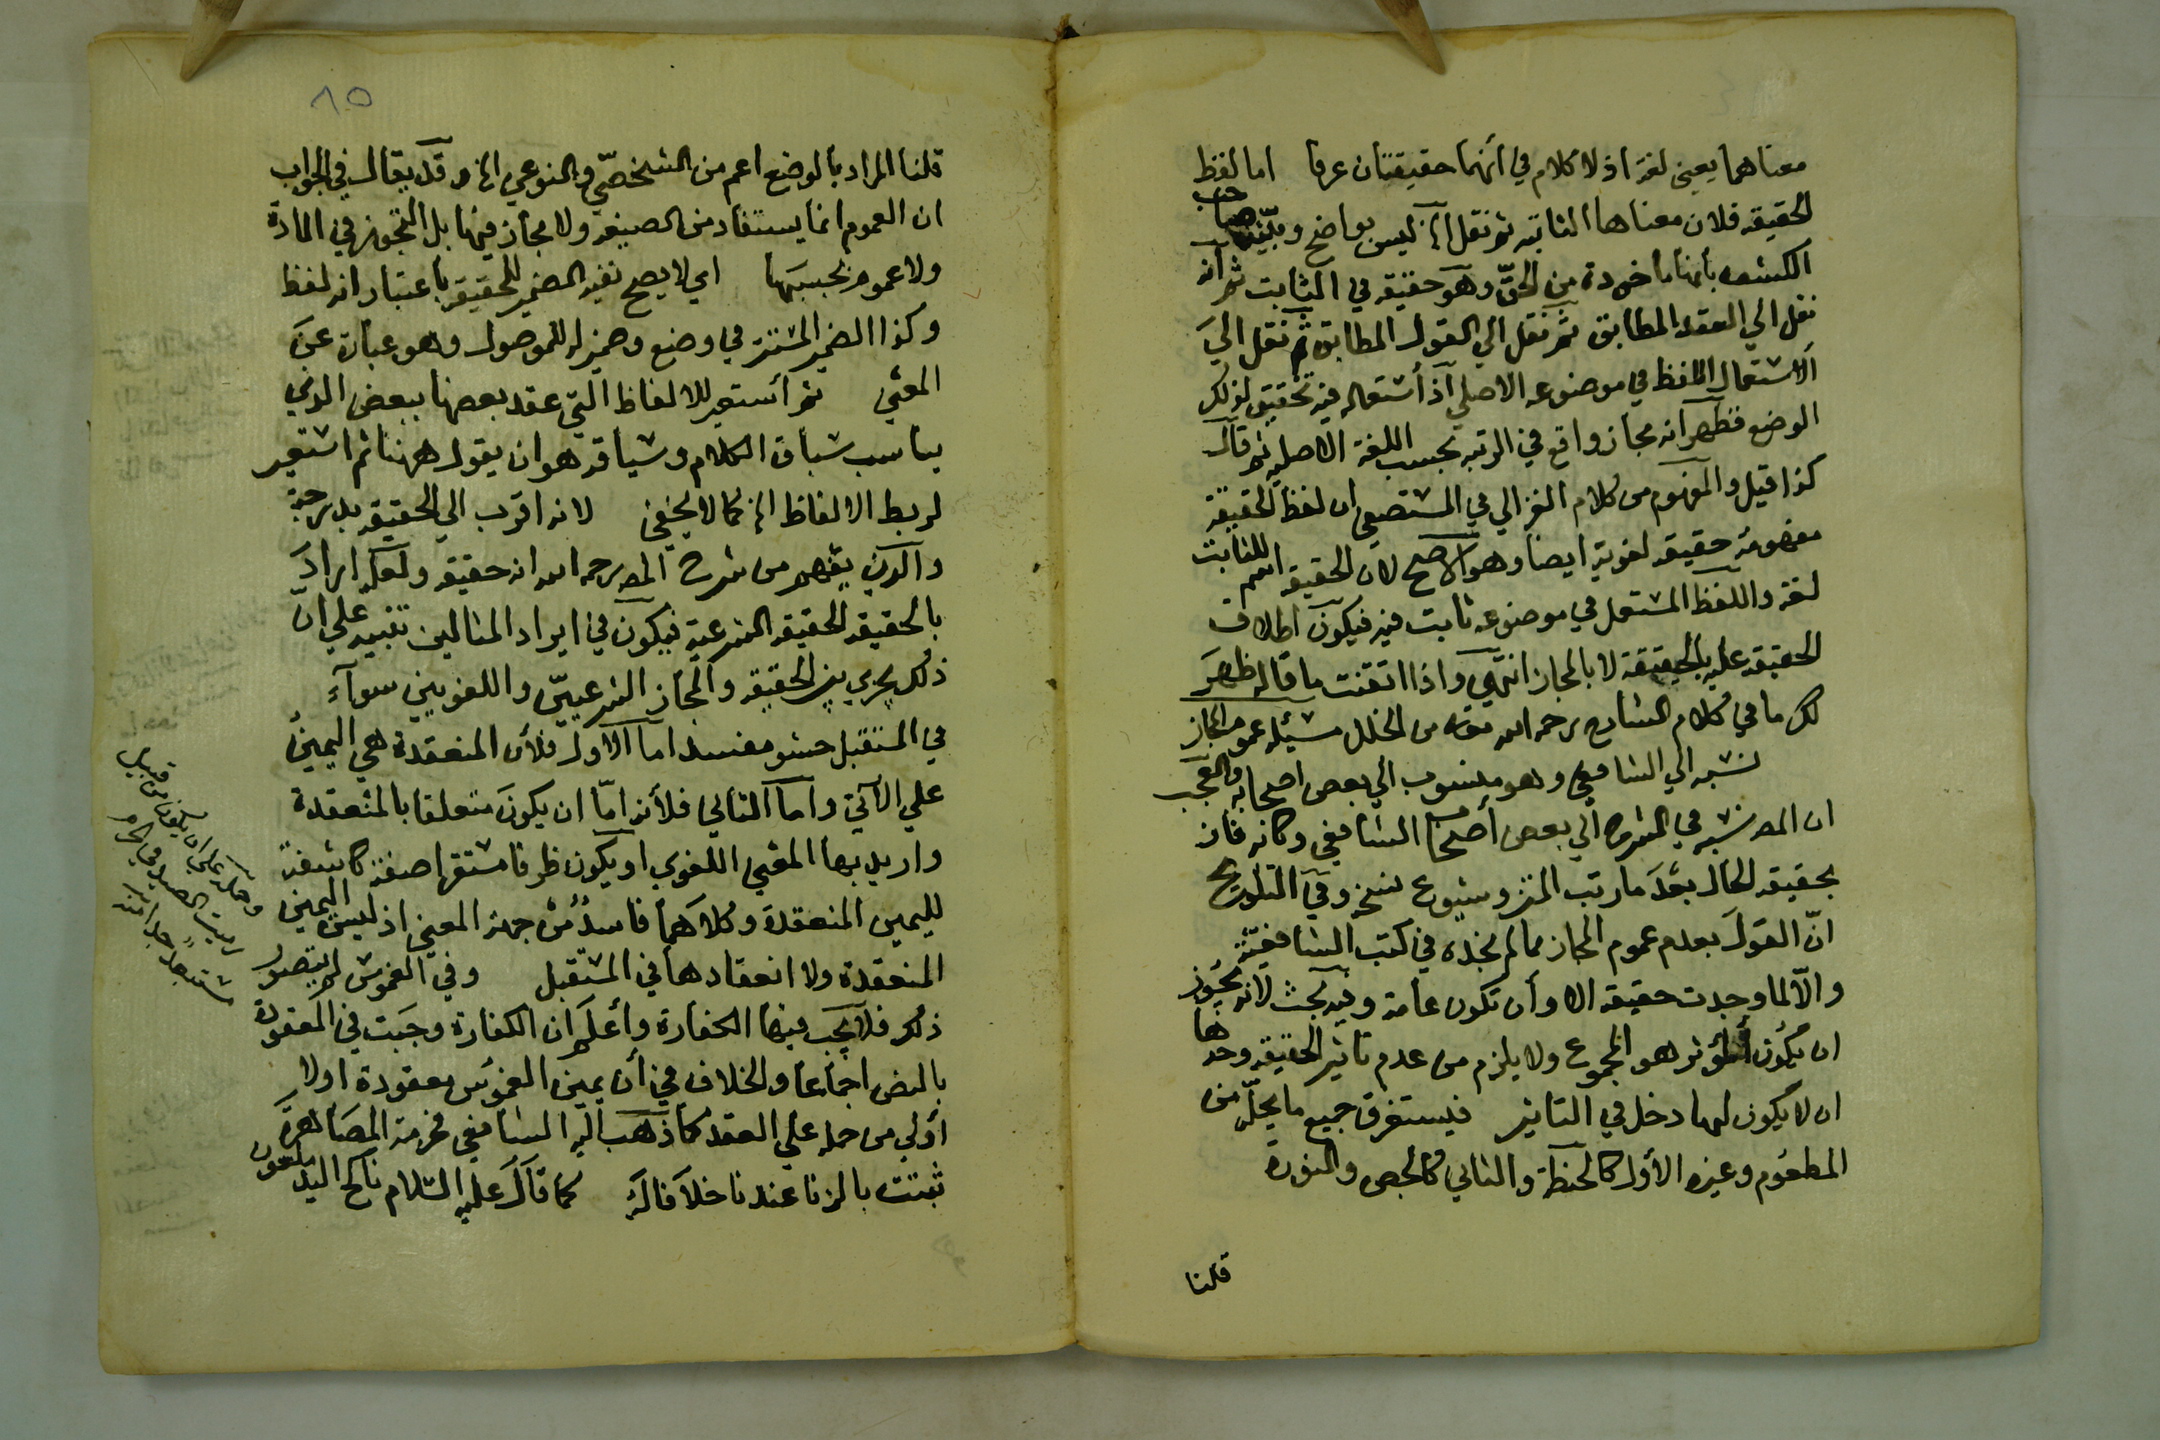 معناهما يعني لغة اذ لا كلام في أنهما حقيقتان عرفا اما لفظ
الحقيقه فلان معناها الثابته ثم نقل الخ ليس بواضح وبيّنه صاحب
الكشف بأنها ماخوذة من الحقّ وهو حقيقه في الثابت ثم انه
نقل الي العقد المطابق ثم نقل الي القول المطابق ثم نقل الي
الاستعمال اللفظ في موضوعه الاصلي اذ أستعماله فيه تحقيق لذلك
الوضع فظهر انه مجاز واقع في الرتبه بحسب اللغة الاصليه ثم قال
كذا قيل والمفهوم من كلام الغزالي في المستصفي ان لفظ الحقيقة
مفهومه حقيقه لغوية ايضا وهو الاصح لان الحقيقه اسم للثابت
لغة واللفظ المستعمل في موضوعه ثابت فيه فيكون اطلاق
الحقيقه عليه بالحقيقة لا بالمجاز انتهي واذا اتقنت ما قاله ظهر
لك ما في كلام الشارح رحمه الله من الخلل مسئله عموم المجاز
نسبه الي الشافعي وهو منسوب الي بعض اصحابه والعجب
ان المص نسبه في الشرح الي بعض أصحاب الشافعي وكانه فاز
بحقيقه الحال بعد ما رتب المتن وشيوع نسخه وفي التلويح
انّ القول بعدم عموم المجاز مما لم نجده في كتب الشافعيّة
والّا لما وجدت حقيقه الا وأن تكون عامة وفيه بحث لانه يجوز
ان يكون المؤثر هو المجموع ولا يلزم من عدم تاثير الحقيقه وحدها
ان لا يكون لها دخل في التاثير فيستغرق جميع ما يحلّه من
المطعوم وغيره الأول كالحنطة والثاني كالجص والنورة
قلنا
٨٥
قلنا المراد بالوضع اعم من الشخصّي والنوعي الخ وقد يقال في الجواب
ان العموم انما يستفاد من الصيغه ولا مجاز فيها بل التجوز في المادة
ولا عموم بحسبها اي لا يصح نفيه الضمير للحقيقه باعتبار انه لفظ
وكذا الضمير المستتر في وضع وضميره للموصول وهو عبارة عن
المعني ثم أستعير للالفاظ التي عقد بعضها ببعض الذي
يناسب سباق الكلام وسياقه هو ان يقول ههنا ثم استعير
لربط الالفاظ الخ كما لا يخفي لانه اقرب الي الحقيقه بدرجة
والذي يفهم من شرح المص رحمه الله انه حقيقه ولعله اراد
بالحقيقه الحقيقه الشرعية فيكون في ايراد المثالين تنبيه علي انّ
ذلك يجري بين الحقيقه والمجاز الشرعييّن واللغويين سوآء
في المستقبل حشو مفسد اما الاول فلأن المنعقدة هي اليمين
علي الآتي واما الثاني فلأنه امّا ان يكون متعلقا بالمنعقدة
واريد بها المعني اللغوي او يكون ظرفا مستقرا صفة كاشفة
لليمين المنعقدة وكلاهما فاسدٌ من جهة المعني اذ ليس اليمين
المنعقدة ولا انعقادها في المستقبل وفي الغموس لم يتصور
ذلك فلا يجب فيها الكفارة وأعلم ان الكفارة وجبت في المعقودة
بالنص اجماعا والخلاف في أن يمين الغموس معقودة اولا
أولي من حمله علي العقد كما ذهب اليه الشافعي فحرمة المصاهرة
ثبتت بالزنا عندنا خلافا له كما قال عليه السّلام ناكح اليد ملعون
وحمله علي ان يكون من قبيل
رميت الصيد في الحرم
مستبعد جدا منه